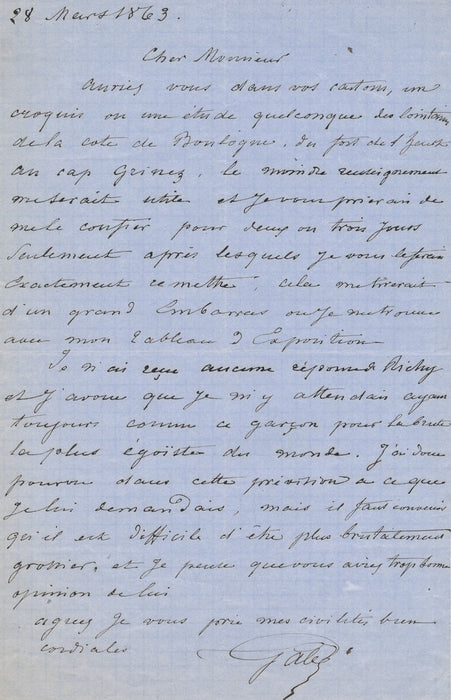 28 Mars 1863.
Cher Monsieur
auriez vous dans vos cartons, un
croquis ou une étude quelconque des lointains
de la cote de Boulogne, du fort de l'heurt
au cap Grinez, le moindre renseignement
me serait utile et je vous prierais de
me le confier pour deux ou trois jours
seulement après lesquels je vous le ferais
exactement remettre, cela me tirerait
d'un grand embarras ou je me trouve
avec mon tableau d'Exposition
Je n'ai reçu aucune réponse de Richy
et j'avoue que je m'y attendais ayant
toujours connu ce garçon pour la brute
la plus égoïste du monde. J'ai donc
pourvu dans cette prévision a ce que
je lui demandais, mais il faut convenir
qu'il est difficile d'être plus brutalement
grossier, et je pense que vous aviez trop bonne
opinion de lui
agréez je vous prie mes civilités bien
cordiales